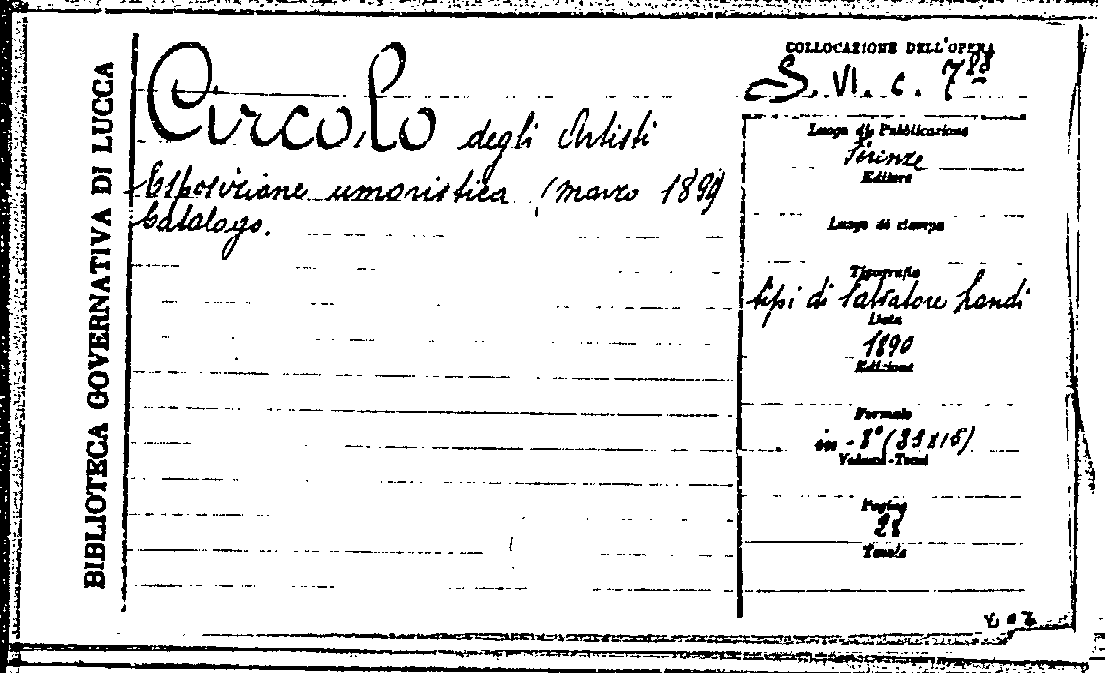 BIBLIOTECA GOVERNATIVA DI LUCCA
Circolo degli Artisti
Esposizione umoristica (marzo 1890)
Catalogo.
COLLOCAZIONE DELL'OPERA
S. VI. c. 788
Luogo di Pubblicazione
Firenze
Editore
Luogo di stampa
Tipografia
tipi di Salvatore Landi
Data
1890
Edizione
Formato
in-8°
Volumi-Tomi
Pagine
28
Tavole